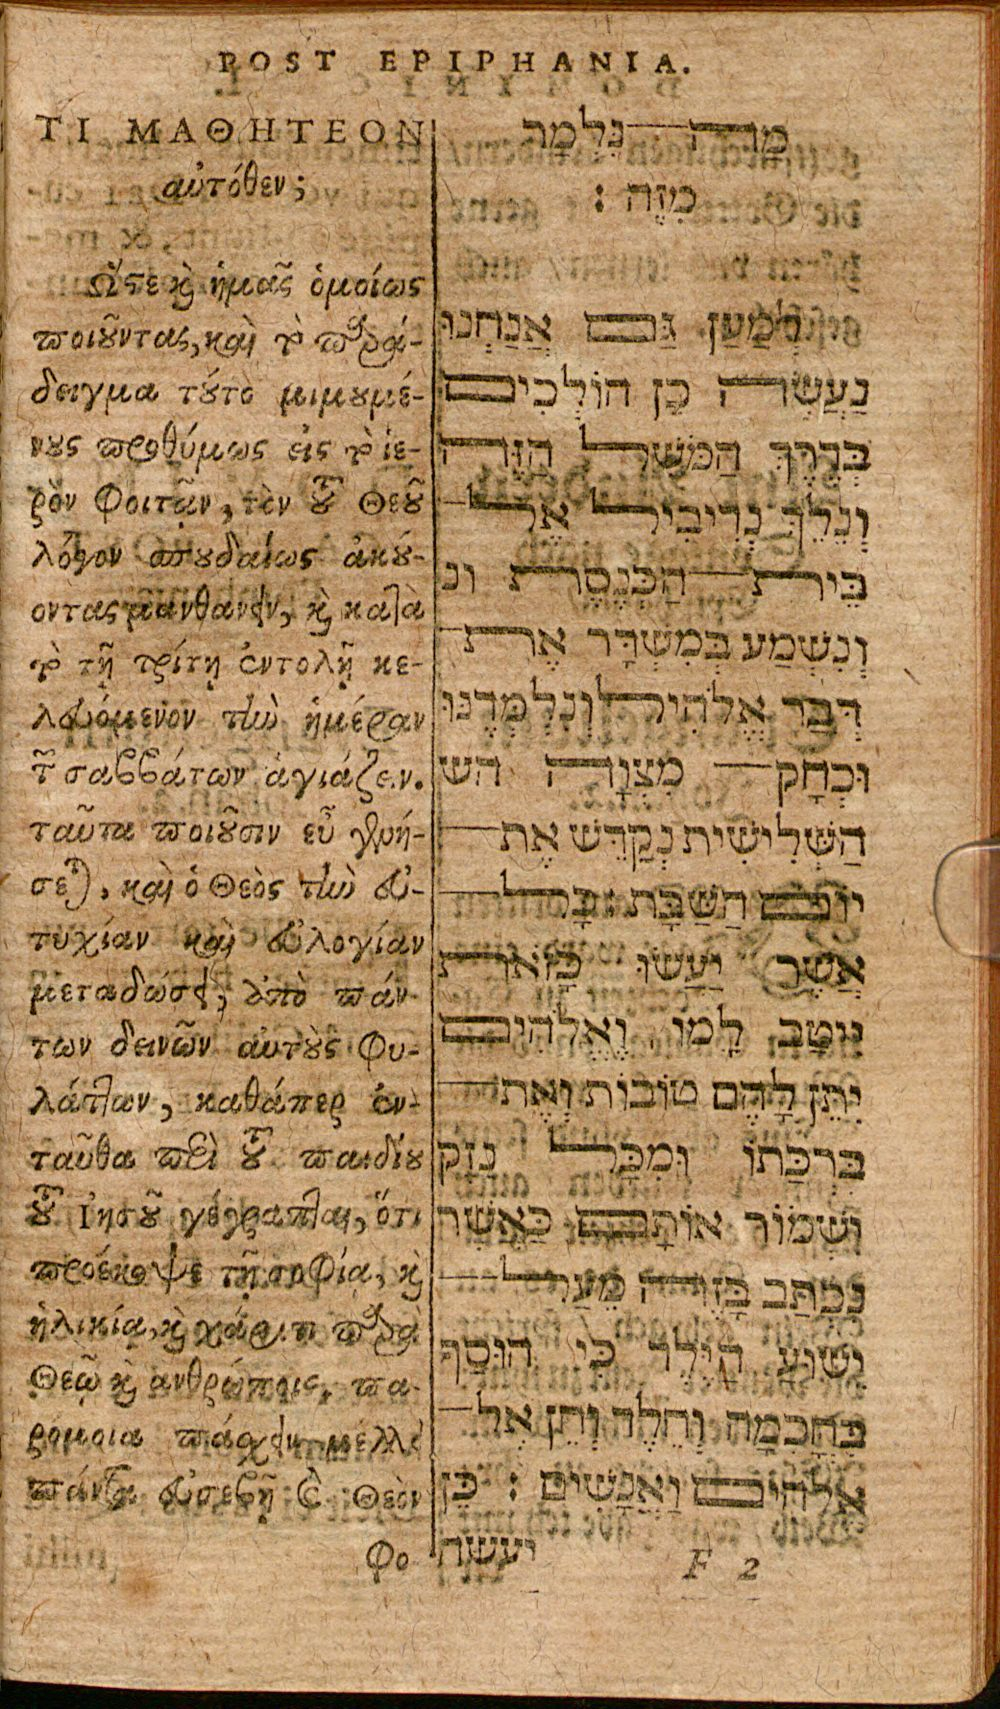 POST EPIPHANIA.
ΤΙ ΜΑΘΗΤΕΟΝ
αὐτόθεν;
Ὥστε καὶ ἡμᾶς ὁμοίως
ποιοῦντας, καὶ τὸ παρά-
δειγμα τοῦτο μιμουμέ-
νους προθύμως εἰς τὸ ἱε-
ρὸν φοιτᾷν, τὸν τοῦ Θεοῦ
λόγον σπουδαίως ἀκού-
οντας μανθάνειν, καὶ κατὰ
τὸ τῇ τρίτῃ ἐντολῇ κε-
λευόμενον τὴν ἡμέραν
τῶν σαββάτων ἁγιάζειν.
ταῦτα ποιοῦσιν εὖ γενή-
σεται, καὶ ὁ Θεὸς τὴν εὐ-
τυχίαν καὶ εὐλογίαν
μεταδώσει, ἀπὸ πάν-
των δεινῶν αὐτοὺς φυ-
λάττων, καθάπερ ἐν-
ταῦθα περὶ τοῦ παιδίου
τοῦ Ἰησοῦ γέγραπται, ὅτι
προέκοψε τῇ σοφίᾳ, καὶ
ἡλικίᾳ, καὶ χάριτι παρὰ
Θεῷ καὶ ἀνθρώποις, πα-
ρόμοια πάσχειν μέλλει
πάντα εὐσεβῆ Θεὸν
Φο
מַה נִּלְמַר
מִזֶּה :
לְמַעַן גַּם אֲנַחְנוּ
נַעֲשֶׂה כֵן הוֹלְכִים
בְּדֶרֶךְ הַמֹּשֶׁל הַזֶּה
וְנֵלֵךְ נְדִיבִיל אֶל
בֵּית הַכְּנֶסֶת ונ
וְנִשְׁמַע בְּמִשְׁדָּר אֶת
דְּבַר אֱלֹהִים וְנִלְמְדֶנּוּ
וּכְחָק מִצְוָה הש
הַשְּׁלִישִׁית נְקַדֵּשׁ אֶת
יוֹם הַשַּׁבָּת : כָּל
אֲשֶׁר יַעֲשׂוּ כָּזֹאת
יִיטַב לָמוֹ וֶאֱלֹהִים
יִתֵּן לָהֶם טוֹבוֹת וְאֶת
בִּרְכָתוֹ וּמִכָּל נֵזֶק
וְשָׁמוֹר אוֹתָם כַּאֲשֶׁר
נִכְתַּב בָּזֶה מֵעַל
יֵשׁוּעַ הַיֶּלֶד כִּי הוּסַף
בְּחָכְמָה וְחֵלֶד וְחֵן אֶל
אֱלֹהִים וַאֲנָשִׁים : כֵּן
יעשה
F 2